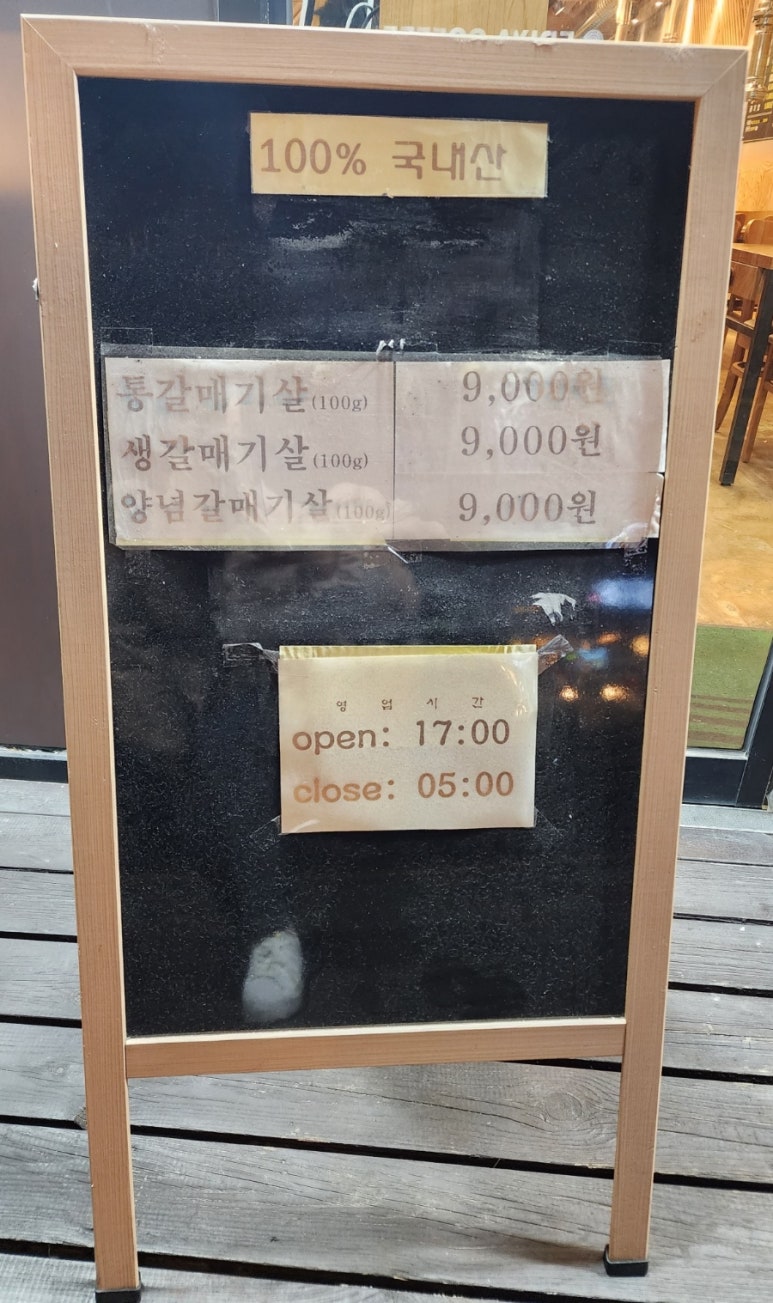 100% 국내산
통갈매기살(100g) 9,000원
생갈매기살(100g) 9,000원
양념갈매기살(100g) 9,000원
영업시간
open: 17:00
close: 05:00